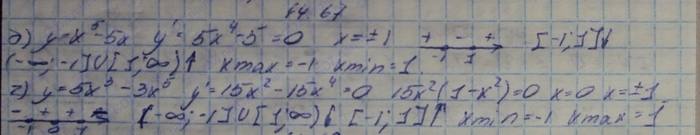 44.67
б) y=x⁵-5x y'=5x⁴-5=0 x=±1 + - + -1 1 [-1;1]↓
(-∞;-1]U[1;∞)↑ xmax=-1 xmin=1
г) y=5x³-3x⁵ y'=15x²-15x⁴=0 15x²(1-x²)=0 x=0 x=±1
- + + - -1 0 1 (-∞;-1]U[1;∞)↓ [-1;1]↑ xmin=-1 xmax=1